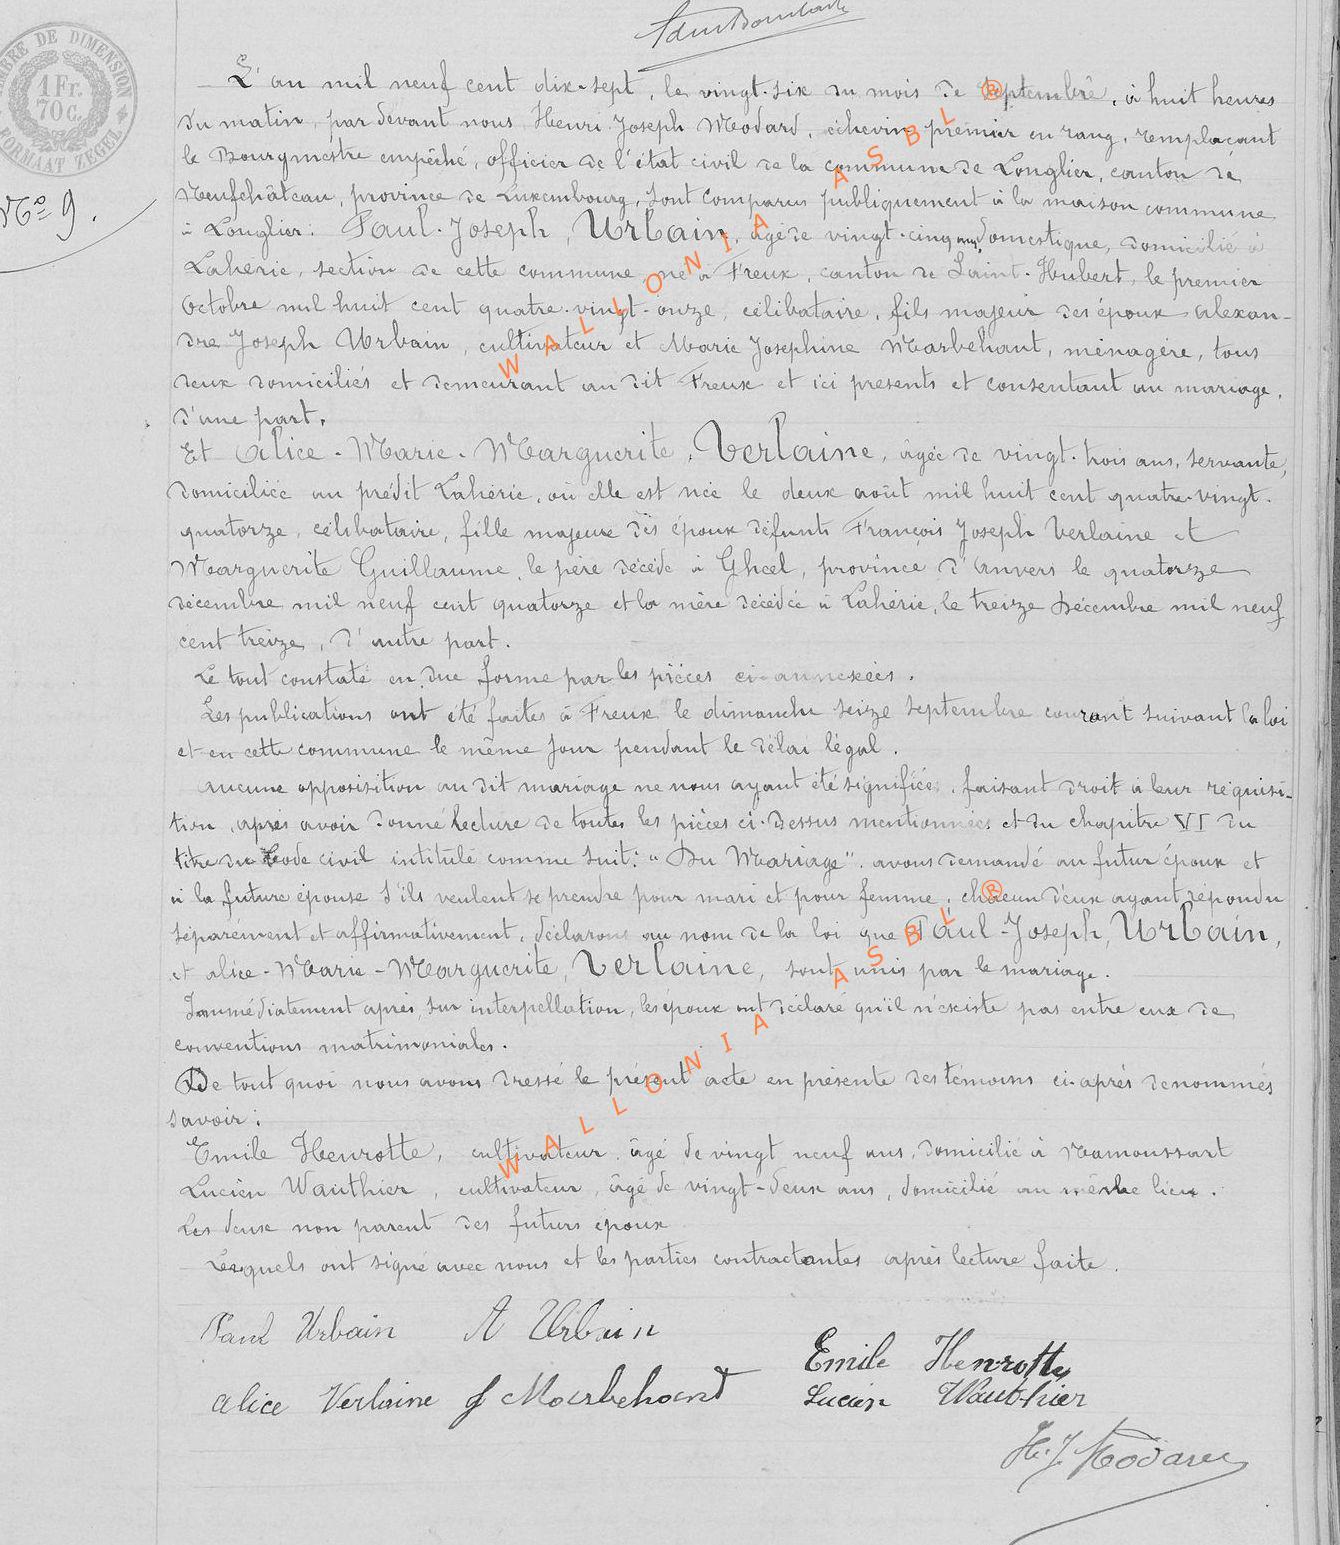 TIMBRE DE DIMENSION
1 Fr.
70 c.
FORMAAT ZEGEL
No 9.
L'an mil neuf cent dix-sept, le vingt-six du mois de septembre, à huit heures
du matin, par devant nous Henri Joseph Modard, échevin premier en rang, remplaçant
le Bourgmestre empêché, officier de l'état civil de la commune de Longlier, canton de
Neufchâteau, province de Luxembourg, sont comparus publiquement à la maison commune
à Longlier: Paul-Joseph, Urbain, âgé de vingt-cinq ans, domestique, domicilié à
Lahérie, section de cette commune, né à Freux, canton de Saint-Hubert, le premier
octobre mil huit cent quatre-vingt-onze, célibataire, fils majeur des époux Alexan-
dre Joseph Urbain, cultivateur et Marie Josephine Marbehant, ménagère, tous
deux domiciliés et demeurant au dit Freux et ici présents et consentant au mariage,
d'une part.
Et Alice-Marie-Marguerite, Verlaine, âgée de vingt-trois ans, servante,
domiciliée au prédit Lahérie, où elle est née le deux août mil huit cent quatre-vingt-
quatorze, célibataire, fille majeure des époux défunts François Joseph Verlaine et
Marguerite Guillaume, le père décédé à Gheel, province d'Anvers le quatorze
décembre mil neuf cent quatorze et la mère décédée à Lahérie, le treize décembre mil neuf
cent treize, d'autre part.
Le tout constaté en due forme par les pièces ci-annexées.
Les publications ont été faites à Freux le dimanche seize septembre courant suivant la loi
et en cette commune le même jour pendant le délai légal.
Aucune opposisition au dit mariage ne nous ayant été signifiée, faisant droit à leur réquisi-
tion, après avoir donné lecture de toutes les pièces ci-dessus mentionnées et du chapitre VI du
titre du Code civil intitulé comme suit: "Du Mariage". avons demandé au futur époux et
à la future épouse s'ils veulent se prendre pour mari et pour femme, chacun d'eux ayant répondu
séparément et affirmativement, déclarons au nom de la loi que Paul-Joseph, Urbain,
et Alice-Marie-Marguerite, Verlaine, sont unis par le mariage.
Immédiatement après, sur interpellation, les époux ont déclaré qu'il n'existe pas entre eux de
conventions matrimoniales.
De tout quoi nous avons dressé le présent acte en présente des témoins ci-après dénommés
savoir:
Emile Henrotte, cultivateur, âgé de vingt neuf ans, domicilié à Mamoussart
Lucien Wauthier, cultivateur, âgé de vingt-deux ans, domicilié au même lieu.
Les deux non parent des futurs époux
Lesquels ont signé avec nous et les parties contractantes après lecture faite.
Paul Urbain A Urbain
Emile Henrotte
Alice Verlaine J Marbehant
Lucien Wauthier
H. J. Modard
WALLONIA ASBL ®
WALLONIA ASBL ®